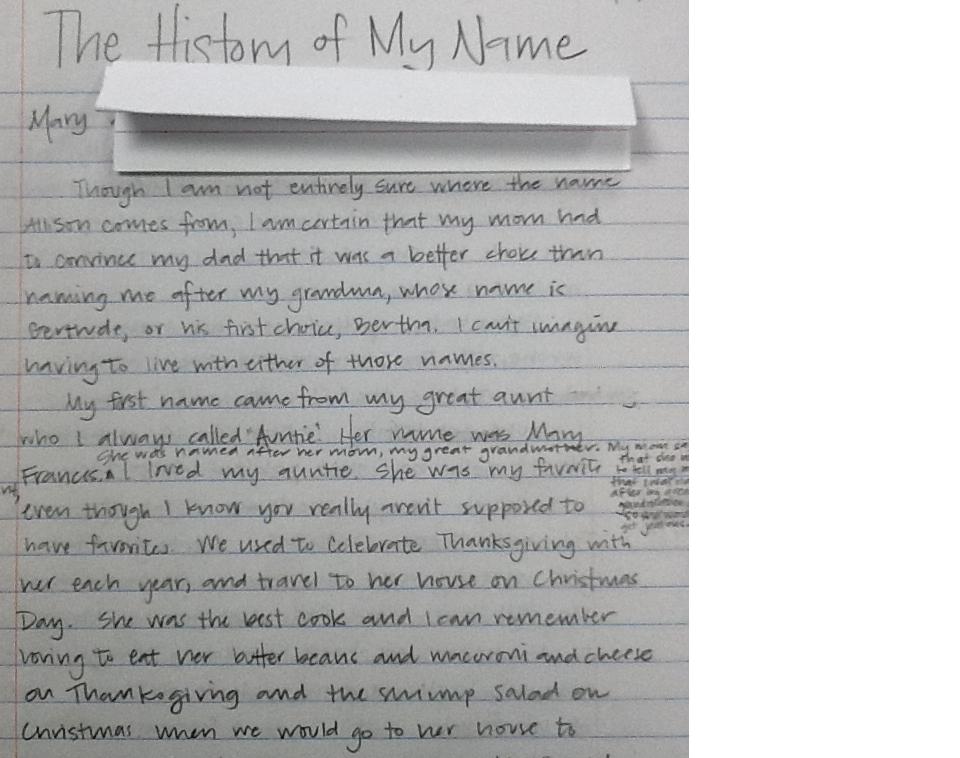 The History of My Name
Mary
Though I am not entirely sure where the name
Allison comes from, I am certain that my mom had
to convince my dad that it was a better choice than
naming me after my grandma, whose name is
Gertrude, or his first choice, Bertha. I can't imagine
having to live with either of those names.
My first name came from my great aunt
who I always called "Auntie". Her name was Mary
She was named after her mom, my great grandmother. My mom
that she
Frances. I loved my auntie. She was my favorite
to tell my
that I was
after my great
grandmother
so she
get jealous.
even though I know you really aren't supposed to
have favorites. We used to celebrate Thanksgiving with
her each year, and travel to her house on Christmas
Day. She was the best cook and I can remember
loving to eat her butter beans and macaroni and cheese
on Thanksgiving and the shrimp salad on
Christmas when we would go to her house to